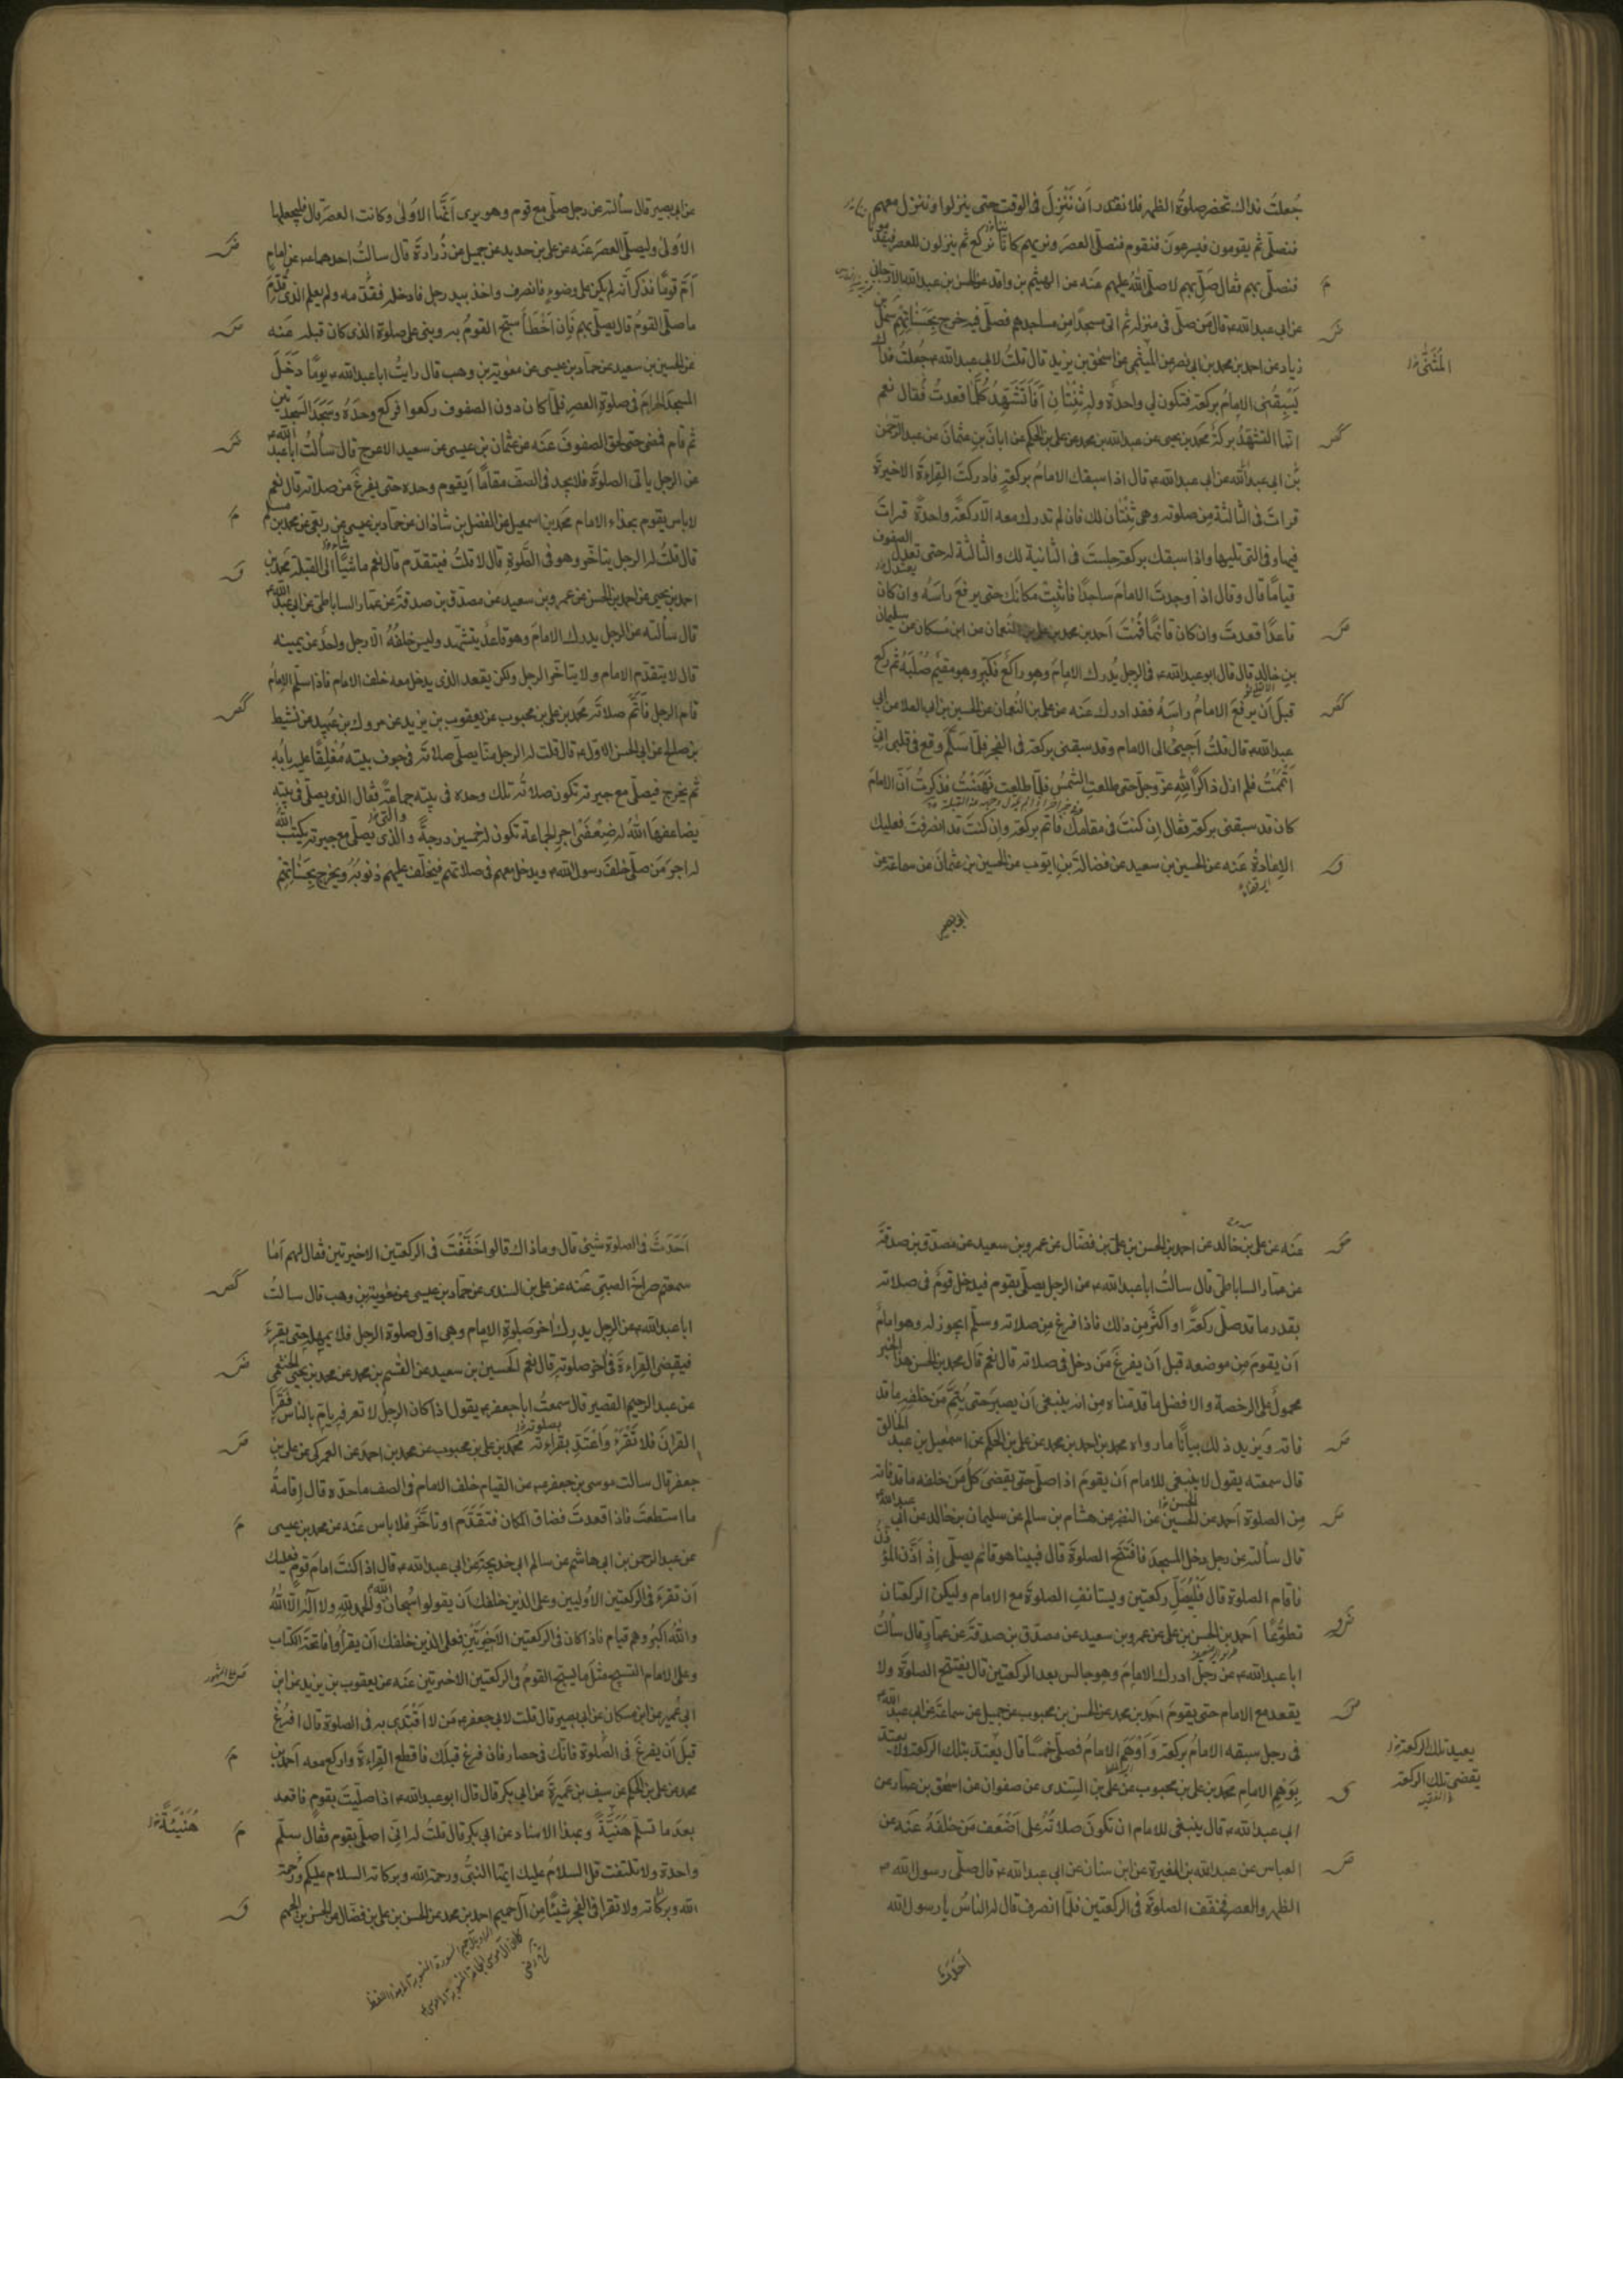 جُعلتُ فداك تحضر صلوةُ الظهر فلا نقدر أن نَنْزِلَ فى الوقت حتى ينزلوا وننزل معهم
فنصلّى ثم يقومون فيسرعون فنقوم فنصلّى العصر ونريهم كانّا نركع ثم ينزلون للعصر فيقدمونا
فنصلّى بهم فقال صَلِّ بهم لا صلّى الله عليهم عنه عن الهيثم بن واقد عن الحسن بن عبد الله الارجانى
عن ابى عبد الله ع قال من صلّى فى منزله ثم اتى مسجدًا من مساجدهم فصلّى فيه خرج بِحَسَناتِهِم سهل بن
زياد عن احمد بن محمد بن ابى نصر عن الميثمى عن اسحق بن يزيد قال قلتُ لابى عبد الله ع جُعلتُ فداك
المُثَنّى
يَسْبِقُنى الامامُ بركعة فتكون لى واحدةٌ وله ثِنْتانِ أفَأتَشَهَّدُ كُلَّما قعدتُ فقال نعم
انّما التشهّدُ بركةٌ محمد بن يحيى عن عبد الله بن محمد عن على بن الحكم عن ابان بن عثمان عن عبد الرحمن
بن ابى عبد الله عن ابى عبد الله ع قال اذا سبقك الامامُ بركعةٍ فادركتَ القراءةَ الاخيرةَ
قراتَ فى الثالثة من صلوته وهى ثِنْتان لك فان لم تدرك معه الّا ركعةً واحدةً قراتَ
فيها وفى التى تليها واذا سبقك بركعة جلستَ فى الثانية لك والثالثة له حتى تعتدل الصفوف
قيامًا قال وقال اذا وجدتَ الامامَ ساجدًا فاثبت مكانَك حتى يرفعَ راسَهُ وان كان
قاعدًا قعدتَ وان كان قائمًا قُمْتَ احمد بن محمد بن على بن النعمان عن ابن مسكان عن سليمان
بن خالد قال قال ابو عبد الله ع فى الرجل يُدرك الامامَ وهو راكع فكبّر وهو مقيم صُلْبَهُ ثم ركع
قبل أن يرفعَ الامامُ راسَهُ فقد ادرك عنه عن على بن النعمان عن الحسين بن ابى العلا عن ابى
عبد الله ع قال قلتُ أجِىءُ الى الامام وقد سبقنى بركعة فى الفجر فلمّا سَلَّمَ وقع فى قلبى انّى
أتْمَمْتُ فلم ازل ذاكرًا لله عزّ وجلّ حتى طلعتِ الشمسُ فلمّا طلعت نَهَضْتُ فذكرتُ أنّ الامامَ
كان قد سبقنى بركعة فقال إن كنتَ فى مقامك فاتمّ بركعة وان كنتَ قد انصرفتَ فعليك
الإعادةُ عنه عن الحسين بن سعيد عن فضالة بن ايّوب عن الحسين بن عثمان عن سماعة عن
ابى بصير
عن ابى بصير قال سألته عن رجل صلّى مع قوم وهو يرى أنّها الاُولى وكانت العصر قال فليجعلها
الأولى وليصلّ العصرَ عنه عن على بن حديد عن جميل عن زُرارةَ قال سالتُ احدهما ع عن إمام
أمّ قومًا فذكر أنّه لم يكن على وضوء فانصرف واخذ بيد رجل فادخله فقدّمه ولم يعلم الذى قُدِّمَ
ما صلّى القومُ قال يصلّى بهم فإن أخْطَأ سبّح القومُ به وبنى على صلوة الذى كان قبله عنه
عن الحسين بن سعيد عن حمّاد بن عيسى عن معوية بن وهب قال رايتُ ابا عبد الله ع يومًا دَخَلَ
المسجدَ الحرامَ فى صلوة العصر فلمّا كان دون الصفوف ركعوا فركع وحدَهُ وسَجَدَ السجدتين
ثم قام فمضى حتى لحق الصفوفَ عنه عن عثمان بن عيسى عن سعيد الاعرج قال سألتُ ابا عبد الله ع
عن الرجل ياتى الصلوةَ فلا يجد فى الصف مقامًا أيقوم وحده حتى يفرغَ من صلاته قال نعم
لا باس يقوم بحذاء الامام محمد بن اسمعيل عن الفضل بن شاذان عن حمّاد بن عيسى عن ربعى عن محمد بن مسلم
قال قلتُ له الرجل يتاخّر وهو فى الصّلوة قال لا قلتُ فيتقدّم قال نعم ماشيًا الى القبلة محمد بن
احمد بن يحيى عن احمد بن الحسن عن عمرو بن سعيد عن مصدّق بن صدقة عن عمّار الساباطى عن ابى عبد الله ع
قال سألته عن الرجل يدرك الامامَ وهو قاعدٌ يتشهّد وليس خلفَهُ الّا رجل واحدٌ عن يمينه
قال لا يتقدّم الامام ولا يتاخّر الرجل ولكن يقعد الذى يدخل معه خلف الامام فاذا سلّم الامامُ
قام الرجل فأتمّ صلاتَه محمد بن على بن محبوب عن يعقوب بن يزيد عن مروك بن عُبيد عن نشيط
بن صالح عن ابى الحسن الاوّل ع قال قلت له الرجل منّا يصلّى صلاتَه فى جوف بيته مُغْلِقًا عليه بابُه
ثم يخرج فيصلّى مع جيرته تكون صلاتُه تلك وحده فى بيته جماعةً فقال الذى يصلّى فى بيته
يضاعفها اللهُ له ضِعْفَىْ اجر الجماعة تكون له خمسين درجةً والذى يصلّى مع جيرته يكتب الله
له اجرَ مَن صلّى خلفَ رسول الله ص ويدخل معهم فى صلاتهم فيخلّف عليهم ذنوبَهُ ويخرج بِحَسَناتِهِم
عنه عن على بن خالد عن احمد بن الحسن بن على بن فضّال عن عمرو بن سعيد عن مصدّق بن صدقة
عن عمّار الساباطى قال سالتُ ابا عبد الله ع عن الرجل يصلّى بقوم فيدخل قومٌ فى صلاته
بقدر ما قد صلّى ركعةً او أكثرَ من ذلك فاذا فرغ من صلاته وسلّم ايجوز له وهو امامٌ
أن يقومَ من موضعه قبل أن يفرغَ مَن دخل فى صلاته قال نعم قال محمد بن الحسن هذا الخبر
محمولٌ على الرخصة والافضل ما قدّمناه من انه ينبغى أن يصبرَ حتى يُتِمَّ مَن خلفه ما قد
فاته وَيزيد ذلك بيانًا ما رواه محمد بن احمد بن محمد عن على بن الحكم عن اسمعيل بن عبد الخالق
قال سمعته يقول لا ينبغى للامام أن يقومَ اذا صلّى حتى يقضىَ كلُّ مَن خلفه ما قد فاته
مِن الصلوة أحمد عن الحسين عن النضر عن هشام بن سالم عن سليمان بن خالد عن ابى عبد الله ع
قال سألته عن رجل دخل المسجدَ فافتتح الصلوةَ قال فبينا هو قائم يصلّى إذ أذّن المؤذّن
فاقام الصلوة قال فَلْيُصَلِّ ركعتين ويستانف الصلوةَ مع الامام وليكن الركعتان
تطوّعًا أحمد بن الحسن بن على عن عمرو بن سعيد عن مصدّق بن صدقة عن عمّارٍ قال سألتُ
ابا عبد الله ع عن رجل ادرك الامامَ وهو جالس بعد الركعتين قال يفتتح الصلوةَ ولا
يقعد مع الامام حتى يقومَ احمد بن محمد عن الحسن بن محبوب عن جميل عن سماعة عن ابى عبد الله ع
فى رجل سبقه الامامُ بركعة وَأوْهَمَ الامامُ فصلّى خمسًا قال يُعيد تلك الركعةَ ولا يعتدّ
يعيد تلك الركعة
يقضى تلك الركعة
بِوَهم الامام محمد بن على بن محبوب عن على بن السندى عن صفوان عن اسحق بن عمّار عن
ابى عبد الله ع قال ينبغى للامام ان تكونَ صلاتُهُ على أضْعَفِ مَن خلفَهُ عنه عن
العباس عن عبد الله بن المغيرة عن ابن سنان عن ابى عبد الله ع قال صلّى رسول الله ص
الظهر والعصر فخفّف الصلوةَ فى الركعتين فلمّا انصرف قال له الناسُ يا رسول الله
أحَدَثَ
أحَدَثَ فى الصلوة شىءٌ قال وما ذاك قالوا خَفَّفْتَ فى الركعتين الاخيرتين فقال لهم أمَا
سمعتم صراخَ الصبىّ عنه عن على بن السندى عن حمّاد بن عيسى عن معوية بن وهب قال سالتُ
ابا عبد الله ع عن الرجل يدرك آخرَ صلوة الامام وهى اوّل صلوة الرجل فلا يمهله حتى يقرءَ
فيقضى القراءةَ فى آخر صلوته قال نعم الحسين بن سعيد عن القسم بن محمد عن محمد بن يحيى الخثعمى
عن عبد الرحيم القصير قال سمعتُ ابا جعفر ع يقول اذا كان الرجل لا تعرفه يامّ بالناس فَقَرَأَ
القرانَ فلا تَقْرَءْ وَاعْتَدَّ بقراءته محمد بن على بن محبوب عن محمد بن احمد عن العمركى عن على بن
جعفر قال سالت موسى بن جعفر ع عن القيام خلف الامام فى الصف ما حدّه قال إقامةُ
ما استطعتَ فاذا قعدتَ فضاق المكان فتقَدَّم او تاخّر فلا باس عنه عن محمد بن عيسى
عن عبد الرحمن بن ابى هاشم عن سالم ابى خديجة عن ابى عبد الله ع قال اذا كنتَ امامَ قومٍ فعليك
أن تقرءَ فى الركعتين الأوليين وعلى الذين خلفك أن يقولوا سُبحان الله والحمد لله ولا اله الّا اللهُ
واللهُ اكبرُ وهم قيام فاذا كان فى الركعتين الأخيرَتَين فعلى الذين خلفك أن يقرأوا فاتحةَ الكتاب
وعلى الامام التسبيح مثلَ ما يسبّح القومُ فى الركعتين الاخيرتين عنه عن يعقوب بن يزيد عن ابن
ابى عُمير عن ابن مسكان عن ابى بصير قال قلت لابى جعفر ع مَن لا اقتدى به فى الصلوة قال افرُغ
قبل أن يفرغَ فى الصّلوة فانّك فى حصار فان فرغ قبلَك فاقطع القراءةَ واركع معه احمد بن
محمد عن على بن الحكم عن سيف بن عَميرةَ عن ابى بكر قال قال ابو عبد الله ع اذا صلّيتَ بقوم فاقعد
بعدَ ما تسلّم هُنَيَّةً وبهذا الاسناد عن ابى بكر قال قلتُ له انّى اصلّى بقوم فقال سلّم
هُنَيْئَةً
واحدة ولا تلتفت قل السلامُ عليك ايّها النبىُّ ورحمة الله وبركاته السلام عليكم ورحمة
الله وبركاته ولا تقرا فى الفجر شيئًا مِن آل حميم احمد بن محمد عن الحسن بن على بن فضّال عن الحسن بن الجهم